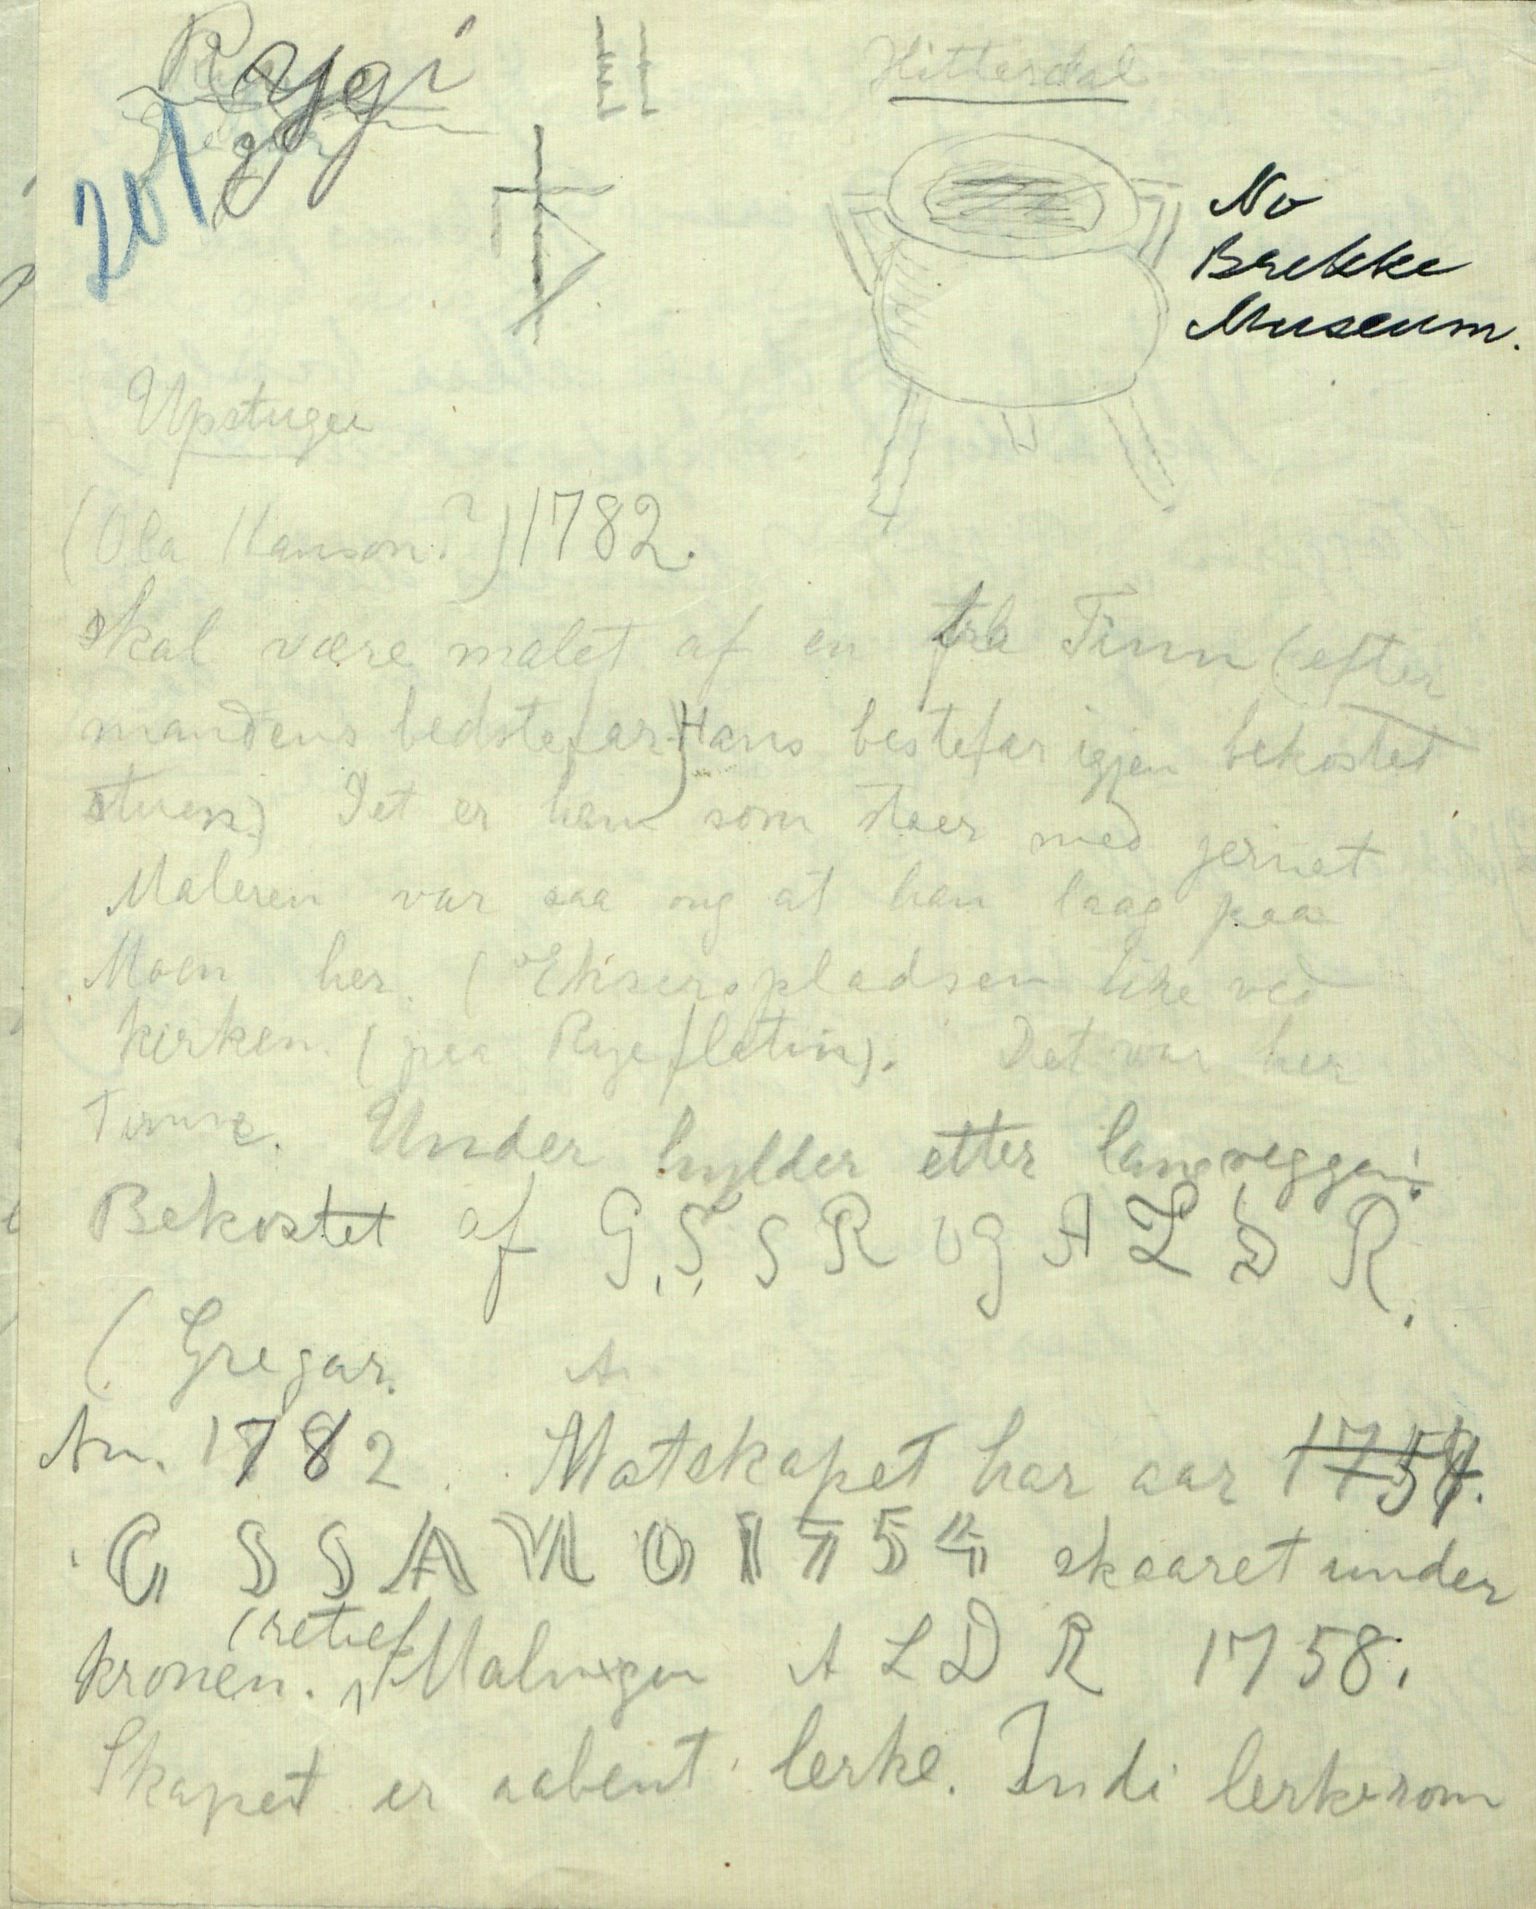 Rygi
Hitterdal
201
No
Brekke
Museum.
Upstugu
(Ola Hanson?) 1782.
Skal være malet af en fra Tinn (efter
mandens bedstefar) Hans bestefar igjen bekostet
stuen) Det er han som staar med jernet
Maleren var saa ung at han laag paa
Moen her. (Ekserspladsen like ved
kirken. (paa Ryeflatin). Det var her
Under hylder etter langveggen:
Bekostet af G. S. S R og A L D R.
(Gregar. A
An. 1782. Matskapet har aar 1754.
G S S A N O 1754 skaaret under
(relief
kronen. Malingen A L D R 1758.
Skapet er aabent lerke. Indi lerkerom